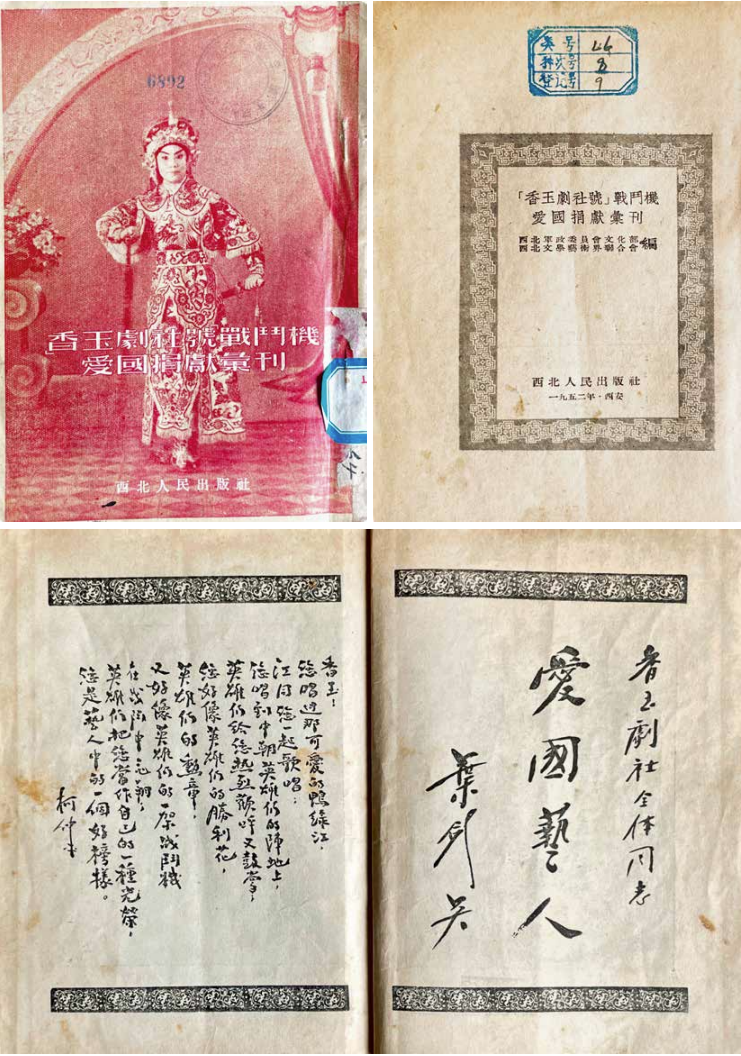 6892
香玉劇社號戰鬥機
愛國捐獻彙刊
西北人民出版社
44
类号 44
登记号 9
「香玉劇社號」戰鬥機
愛國捐獻彙刊
西北軍政委員會文化部
西北文學藝術界聯合會
編
西北人民出版社
一九五二年·西安
香玉劇社全体同志
愛國藝人
葉剑英
香玉：
您唱过那可爱的鴨綠江，
江同您一起歌唱；
您唱到中朝英雄们的陣地上，
英雄们给您热烈歡呼又鼓掌，
您好像英雄们的勝利花，
英雄们的勳章，
又好像英雄们的一架战鬥機
在战鬥中飞翔，
英雄们把您當作自己的一種光榮，
您是藝人中的一個好榜樣。
柯仲平